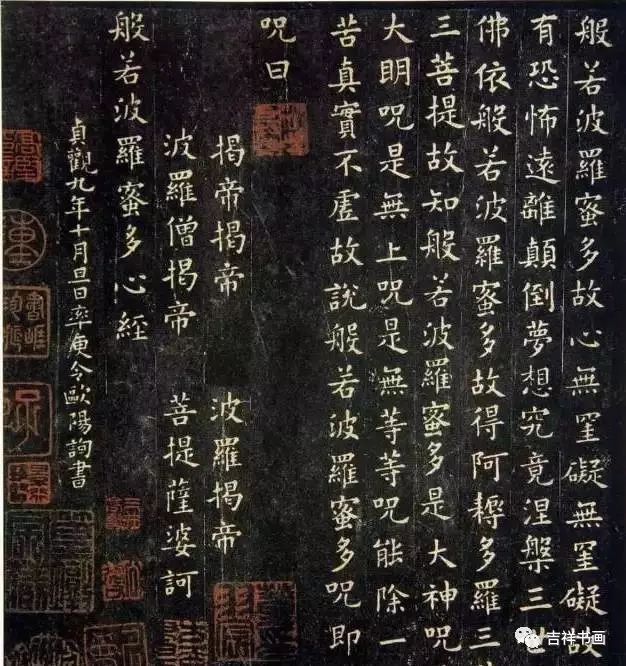 般若波羅蜜多故心無罣礙無罣礙故
有恐怖遠離顛倒夢想究竟涅槃三世
佛依般若波羅蜜多故得阿耨多羅三
三菩提故知般若波羅蜜多是大神咒
大明咒是無上咒是無等等咒能除一
苦真實不虛故說般若波羅蜜多咒即
咒曰
揭帝揭帝 波羅揭帝
波羅僧揭帝 菩提薩婆訶
般若波羅蜜多心經
貞觀九年十月旦日率更令歐陽詢書
吉祥书画